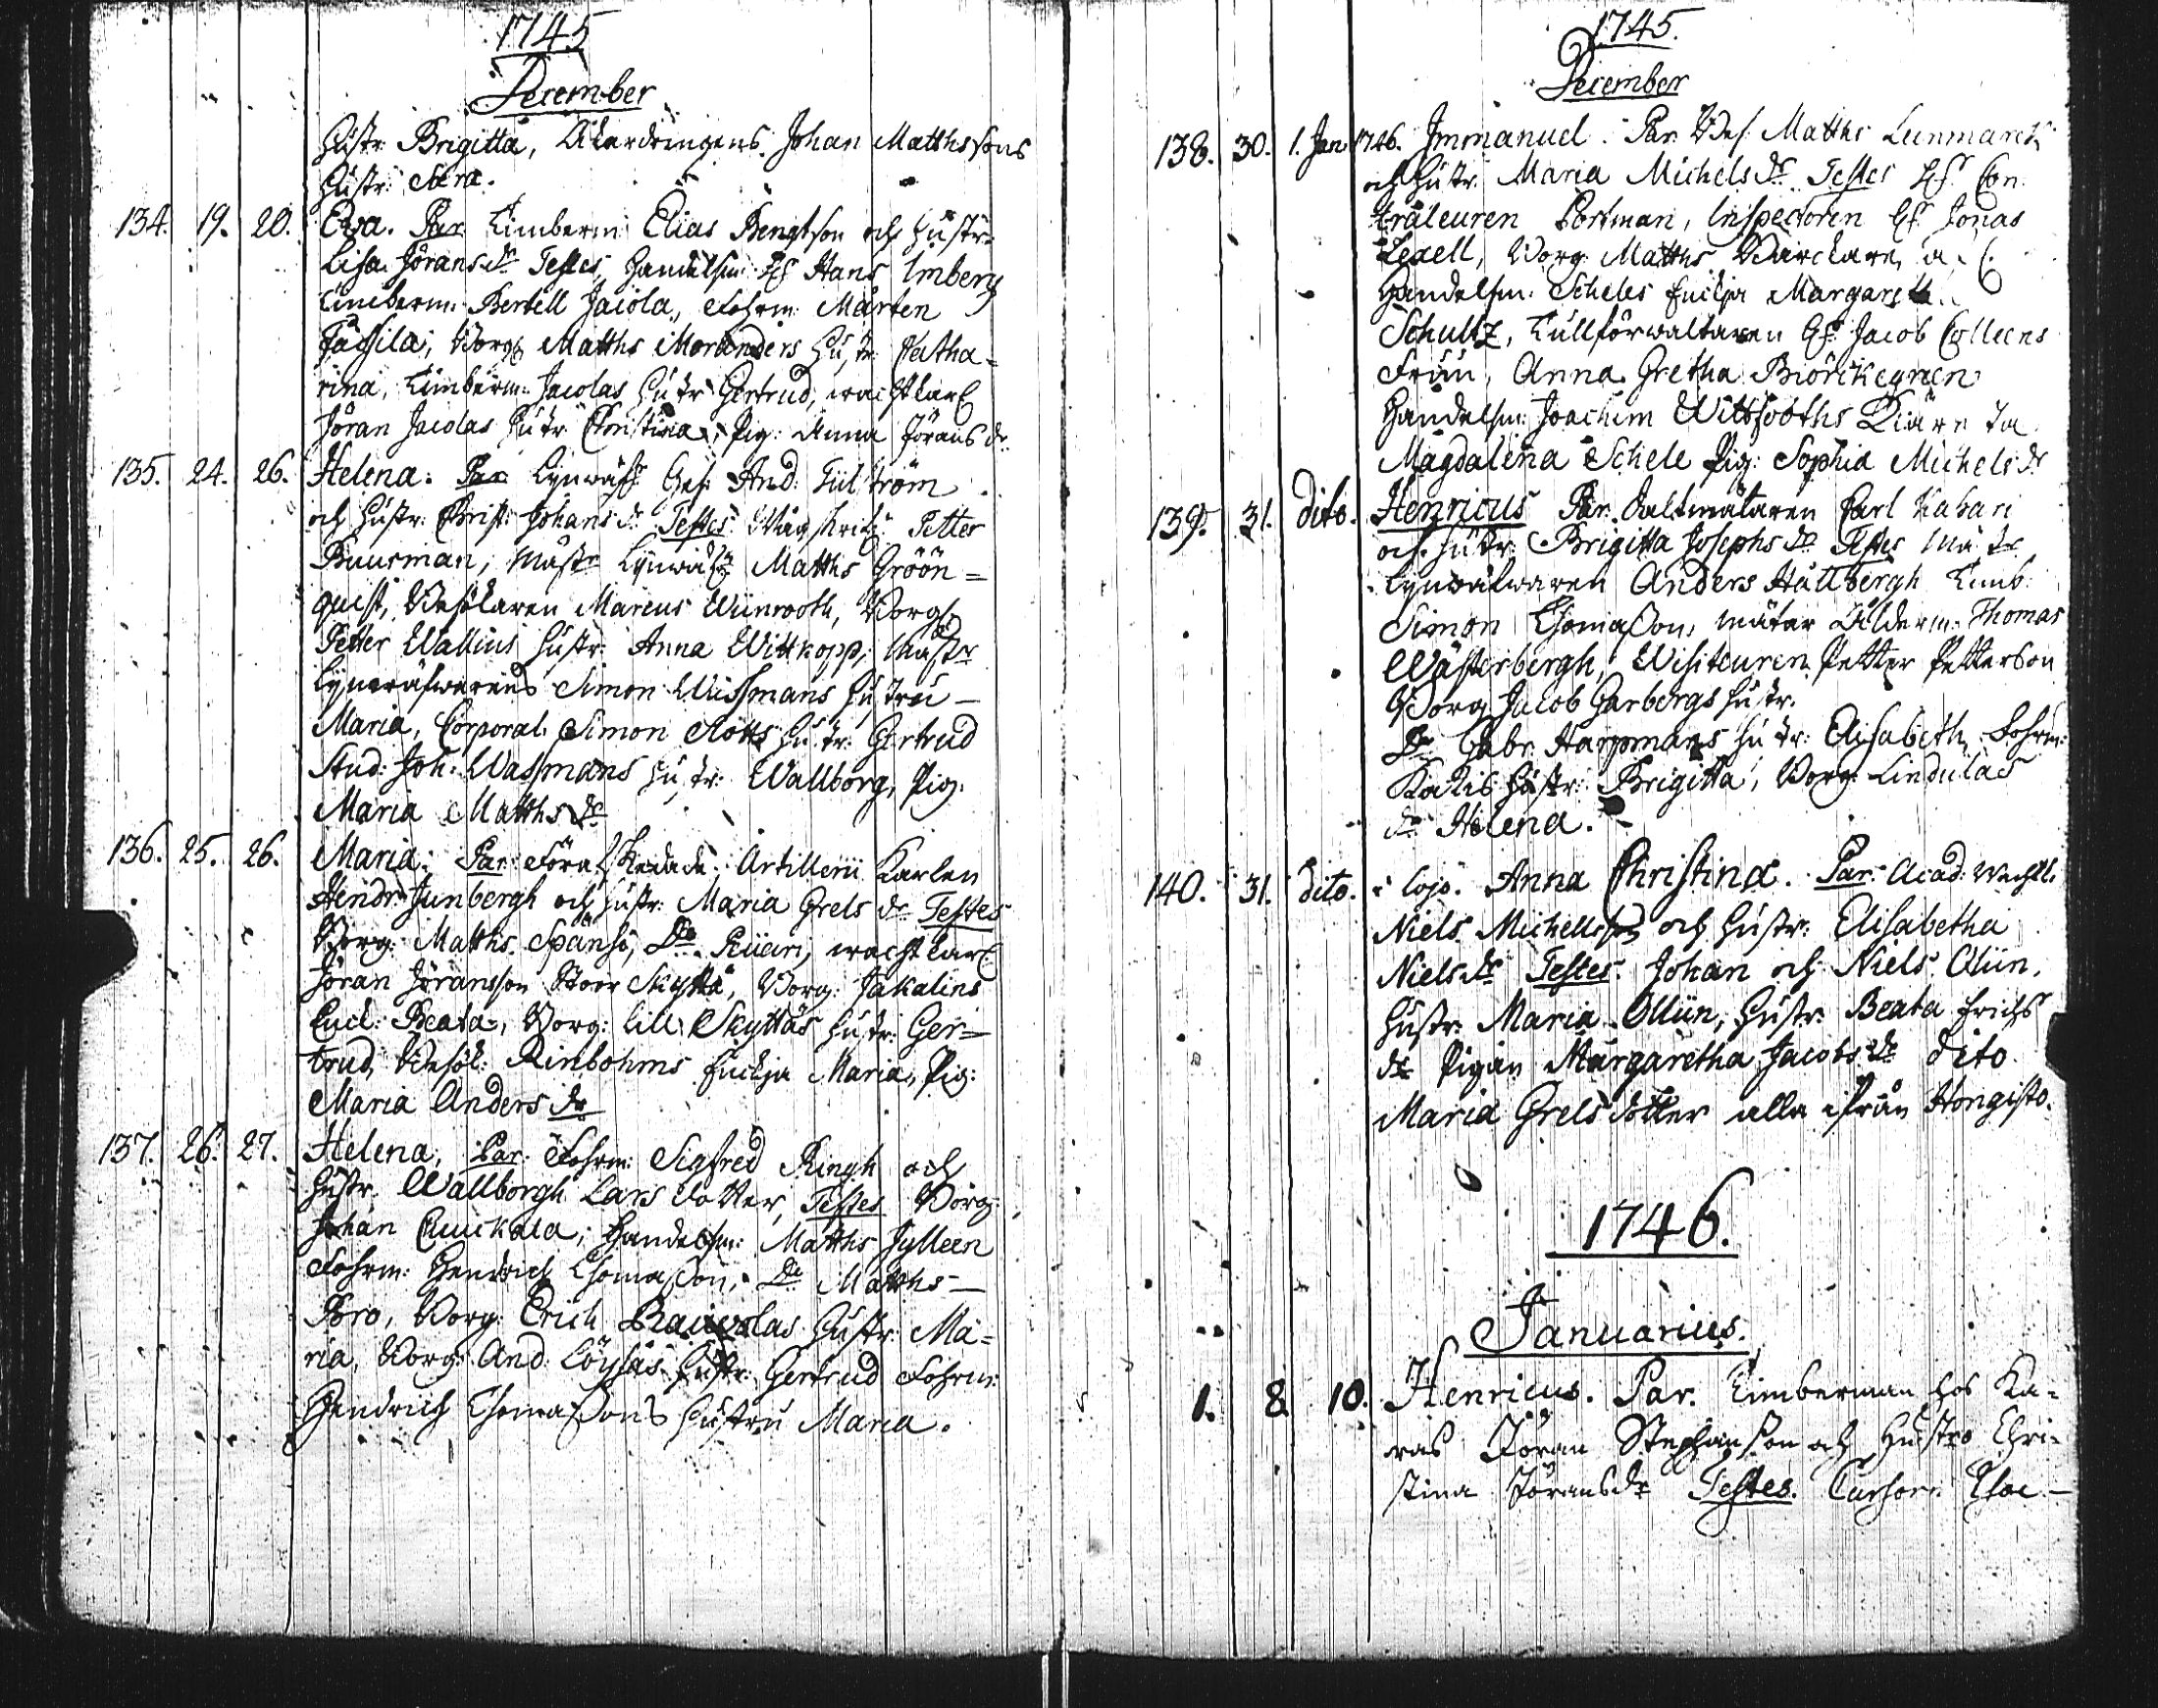 1745
December
Hustr: Brigitta, Åkardrengens Johan Matthssons
Hustr:
134. 19. 20. Eva. Par. Timberm: Elias Bengtson och Hustr:
Lisa Jörans dr Testes, Handelsm: Hr Hans Imberg
Timberm: Bertell Jacola, Fohrm: Mårten
Borg: Matths Moranders Hustr: Catha=
rina, Timberm: Jacolas Hustr: Gertrud, wachtkarl
Jöran Jacolas Hustr: Christina, Pig: Anna Jörans dr
135. 24. 26. Helena. Par. Lijnwäf: Ges: And:
och Hustr: Christ: Johans dr Testes Petter
Buurman, Mäst: Lijnwäf: Matths Gröön=
quist, Besökaren Marcus Wiinrooth, Borg:
Petter Wallius Hustr: Anna Wittkopp, Mäst:
Lijnwäfwarens Simon Wissmans Hustru
Maria, Corporal: Simon Hustr: Gertrud
Stud: Joh: Wassmans Hustr: Wallborg, Pig:
Maria Matths dr
136. 25. 26. Maria. Par. Förafskedade Artilleri Karlen
Hendr: Junbergh och Hustr: Maria Grels dr Testes
Borg: Matths Do wachtkarl
Jöran Jöransson Stoor Skyttä, Borg:
Enck: Beata, Borg: Lill Skyttäs Hustr: Ger=
trud, Besök: Rinbohms Enckja Maria, Pig:
Maria Anders dr
137. 26. 27. Helena, Par. Fohrm: Sigfred Ringh och
Hustr: Wallborgh Lars dotter, Testes Borg:
Johan Handelsm: Matths Jylleen
Fohrm: Hendrich Thomasson, Do Matths
Borg: Erich Hustr: Ma=
ria, Borg: And: Hustr: Gertrud Fohrm:
Hendrich Thomassons Hustru Maria.
1745.
December
138. 30. 1. Jan 1746. Immanuel. Par. Bes: Matths Lenmarck
och Hustr: Maria Michels dr Testes Hr Con
traleuren Portman, Inspectoren Hr Jonas
Lexell, Borg: Matths
Handelsm: Scheles Enckja Margareta
Schultz, Tullförwaltaren Hr Jacob Colleens
Fruu, Anna Gretha
Handelsm: Joachim Wittfooths Kiäresta
Magdalena Schele Pig: Sophia Michels dr
139. 31. dito. Henricus Par. Saltmätaren Carl
och Hustr: Brigitta Josephs dr Testes Mäst:
Lijnwäfwaren Anders Hällbergh Timb:
Simon Thomasson, mätar Ålderm: Thomas
Wästerbergh, Visiteuren Petter Petterson
Borg: Jacob Garbergs Hustr:
Do Gabr: Harpmans Hustr: Elisabeth, Fohrm:
Hustr: Brigitta, Borg: Lindulas
dr Helena.
140. 31. dito. i Lojo. Anna Christina. Par. Acad: Wachtk.
Niels Michellsson och Hustr: Elisabetha
Niels dr Testes. Johan och Niels
Hustr: Maria Hustr: Beata Erichs
dr Pigan Margaretha Jacobs dr dito
Maria Grels dotter alla ifrån Hongisto.
1746.
Januarius.
1. 8 10. Henricus. Par. Timberman hos Ka=
ras Jöran Stephanson och Hustro Chri=
stina Jöransdr Testes.